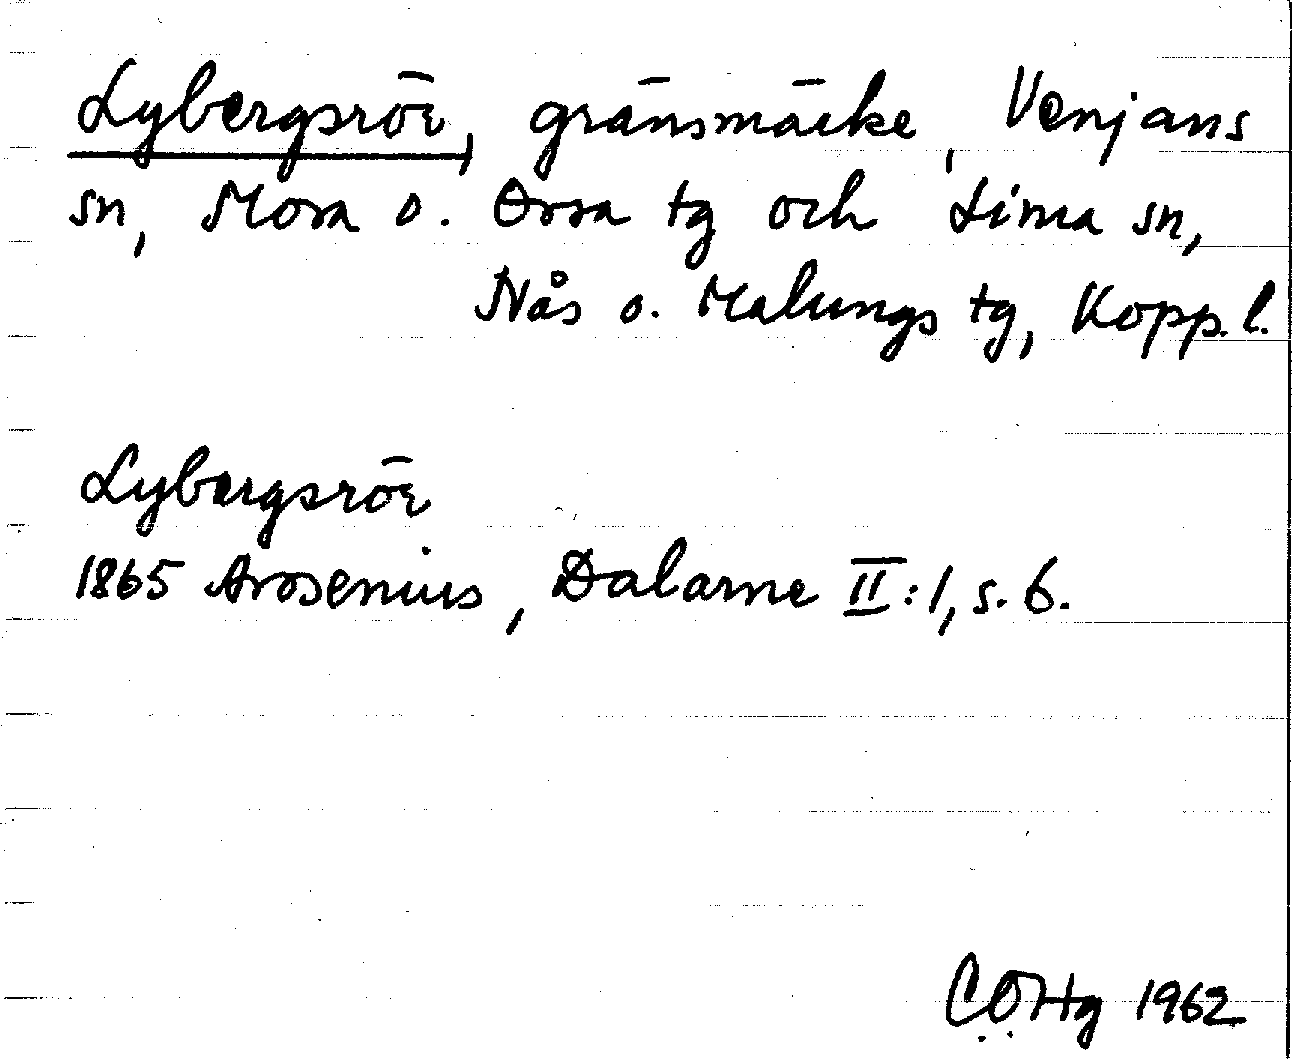 Lybergsrör, gränsmärke, Venjans
sn, Mora o. Orsa tg och Lima sn,
Nås o. Malungs tg, Kopp. l.
Lybergsrör
1865 Arosenius, Dalarne II:1, s. 6.
CÖHg 1962